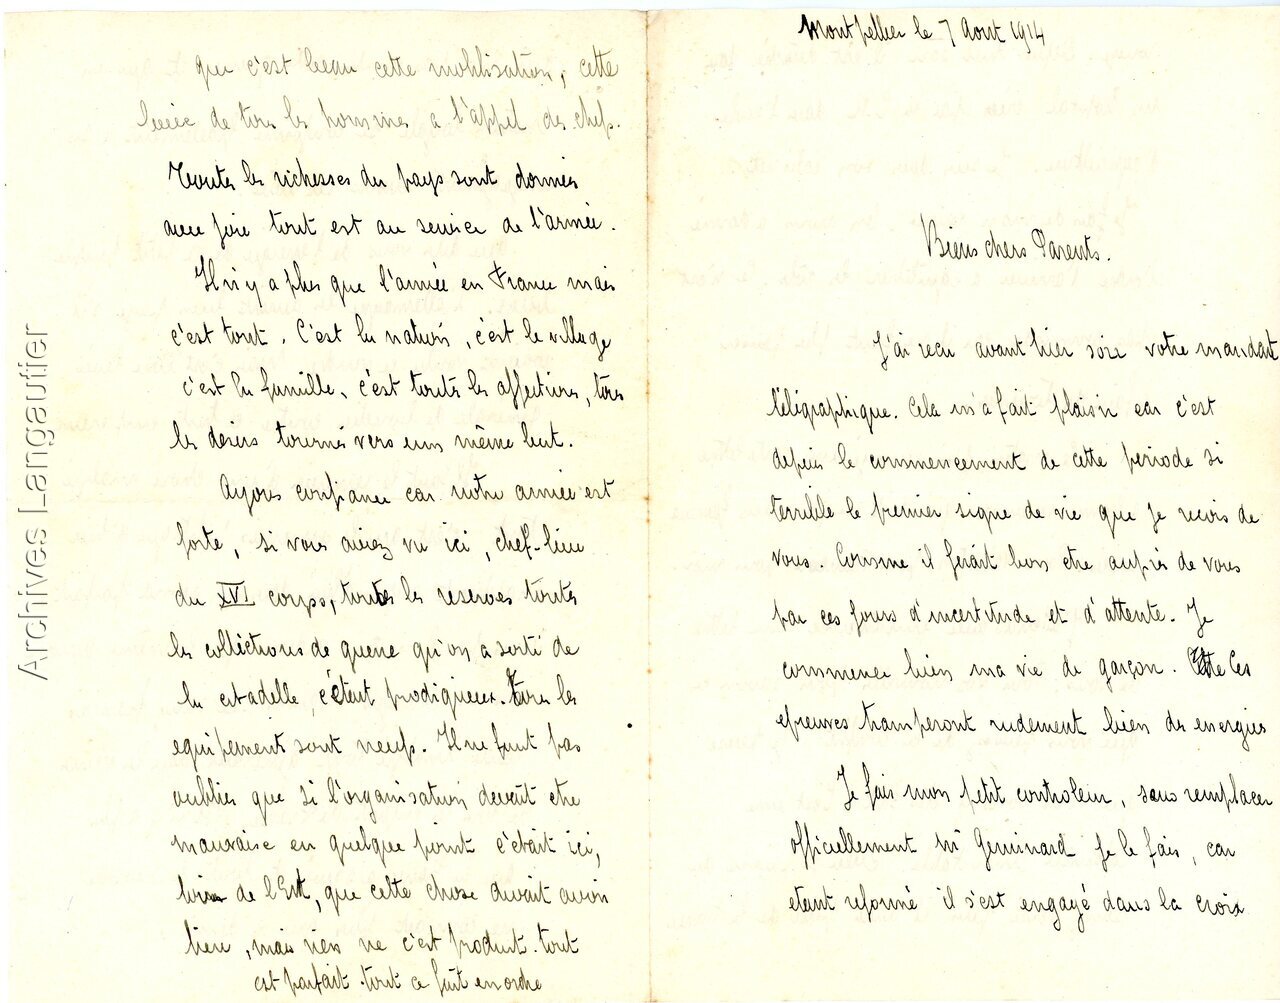 Montpellier le 7 Aout 1914
Biens chers Parents.
J'ai recu avant hier soir votre mandat
télégraphique. Cela m'a fait plaisir car c'est
depuis le commencement de cette periode si
terrible le premier signe de vie que je recois de
vous. Comme il ferait bon etre auprès de vous
par ces jours d'incertitude et d'attente. Je
commence bien ma vie de garçon. Ces
epreuves tramperont rudement bien des energies
Je fais mon petit controleur, sans remplacer
officiellement Mr Geminard je le fais, car
etant reformé il s'est engagé dans la croix
que c'est beau cette mobilisation, cette
levée de tous les hommes a l'appel des chefs.
Toutes les richesses du pays sont données
avec joie tout est au service de l'armée.
Il n'y a plus que l'armée en France mais
c'est tout. C'est la nation, c'est le village
c'est la famille, c'est toutes les affections, tous
les desirs tournés vers un même but.
Ayons confiance car notre armée est
forte, si vous aviez vu ici, chef-lieu
du XVI corps, toutes les reserves toutes
les collections de guerre qu'on a sorti de
la citadelle, c'était prodigieux. Tous les
equipements sont neufs. Il ne faut pas
oublier que si l'organisation devait etre
mauvaise en quelque point c'était ici,
loin de l'Est, que cette chose devait avoir
lieu, mais rien ne c'est produit. tout
est parfait. tout ce fait en ordre
Archives Langautier